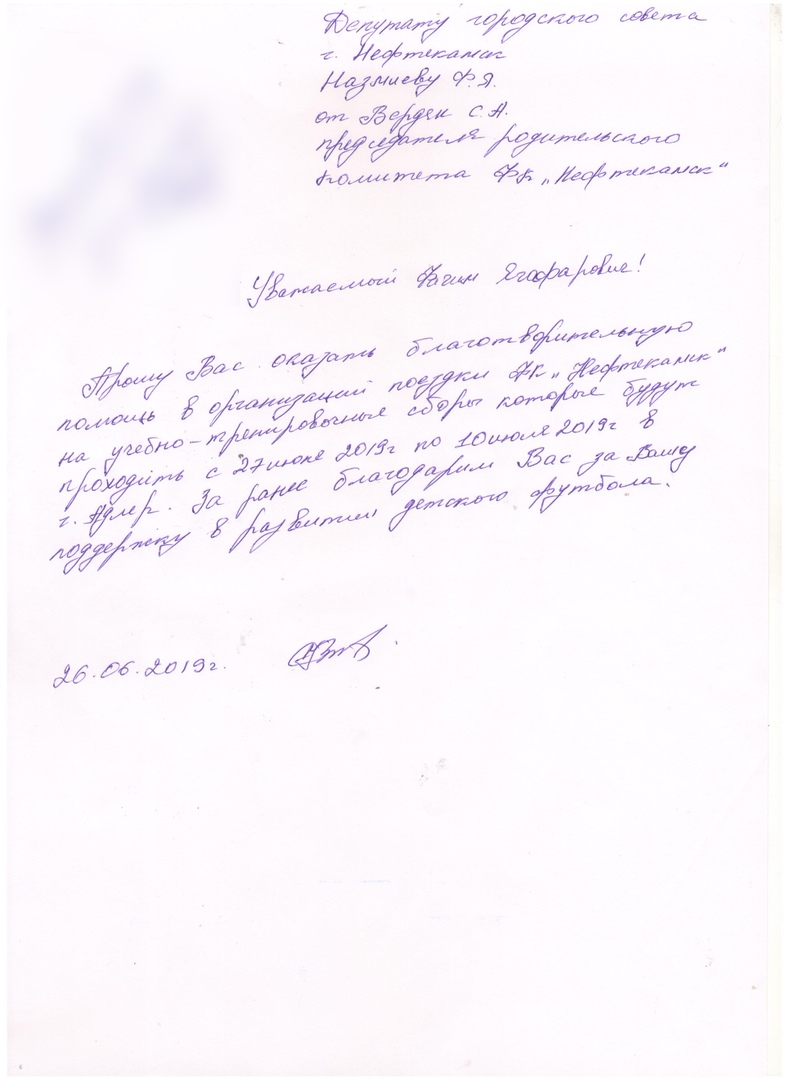 Депутату городского совета
г. Нефтекамск
Назмиеву Ф.Я.
от Вердян С.А.
председателя родительского
комитета ФК „Нефтекамск“
Уважаемый Фагим Ягафарович!
Прошу Вас оказать благотворительную
помощь в организаций поездки ФК „Нефтекамск“
на учебно-тренировочные сборы которые будут
проходить с 27 июня 2019г по 10 июля 2019г в
г. Адлер. За ранее благодарим Вас за Вашу
поддержку в развитии детского футбола.
26.06.2019г.